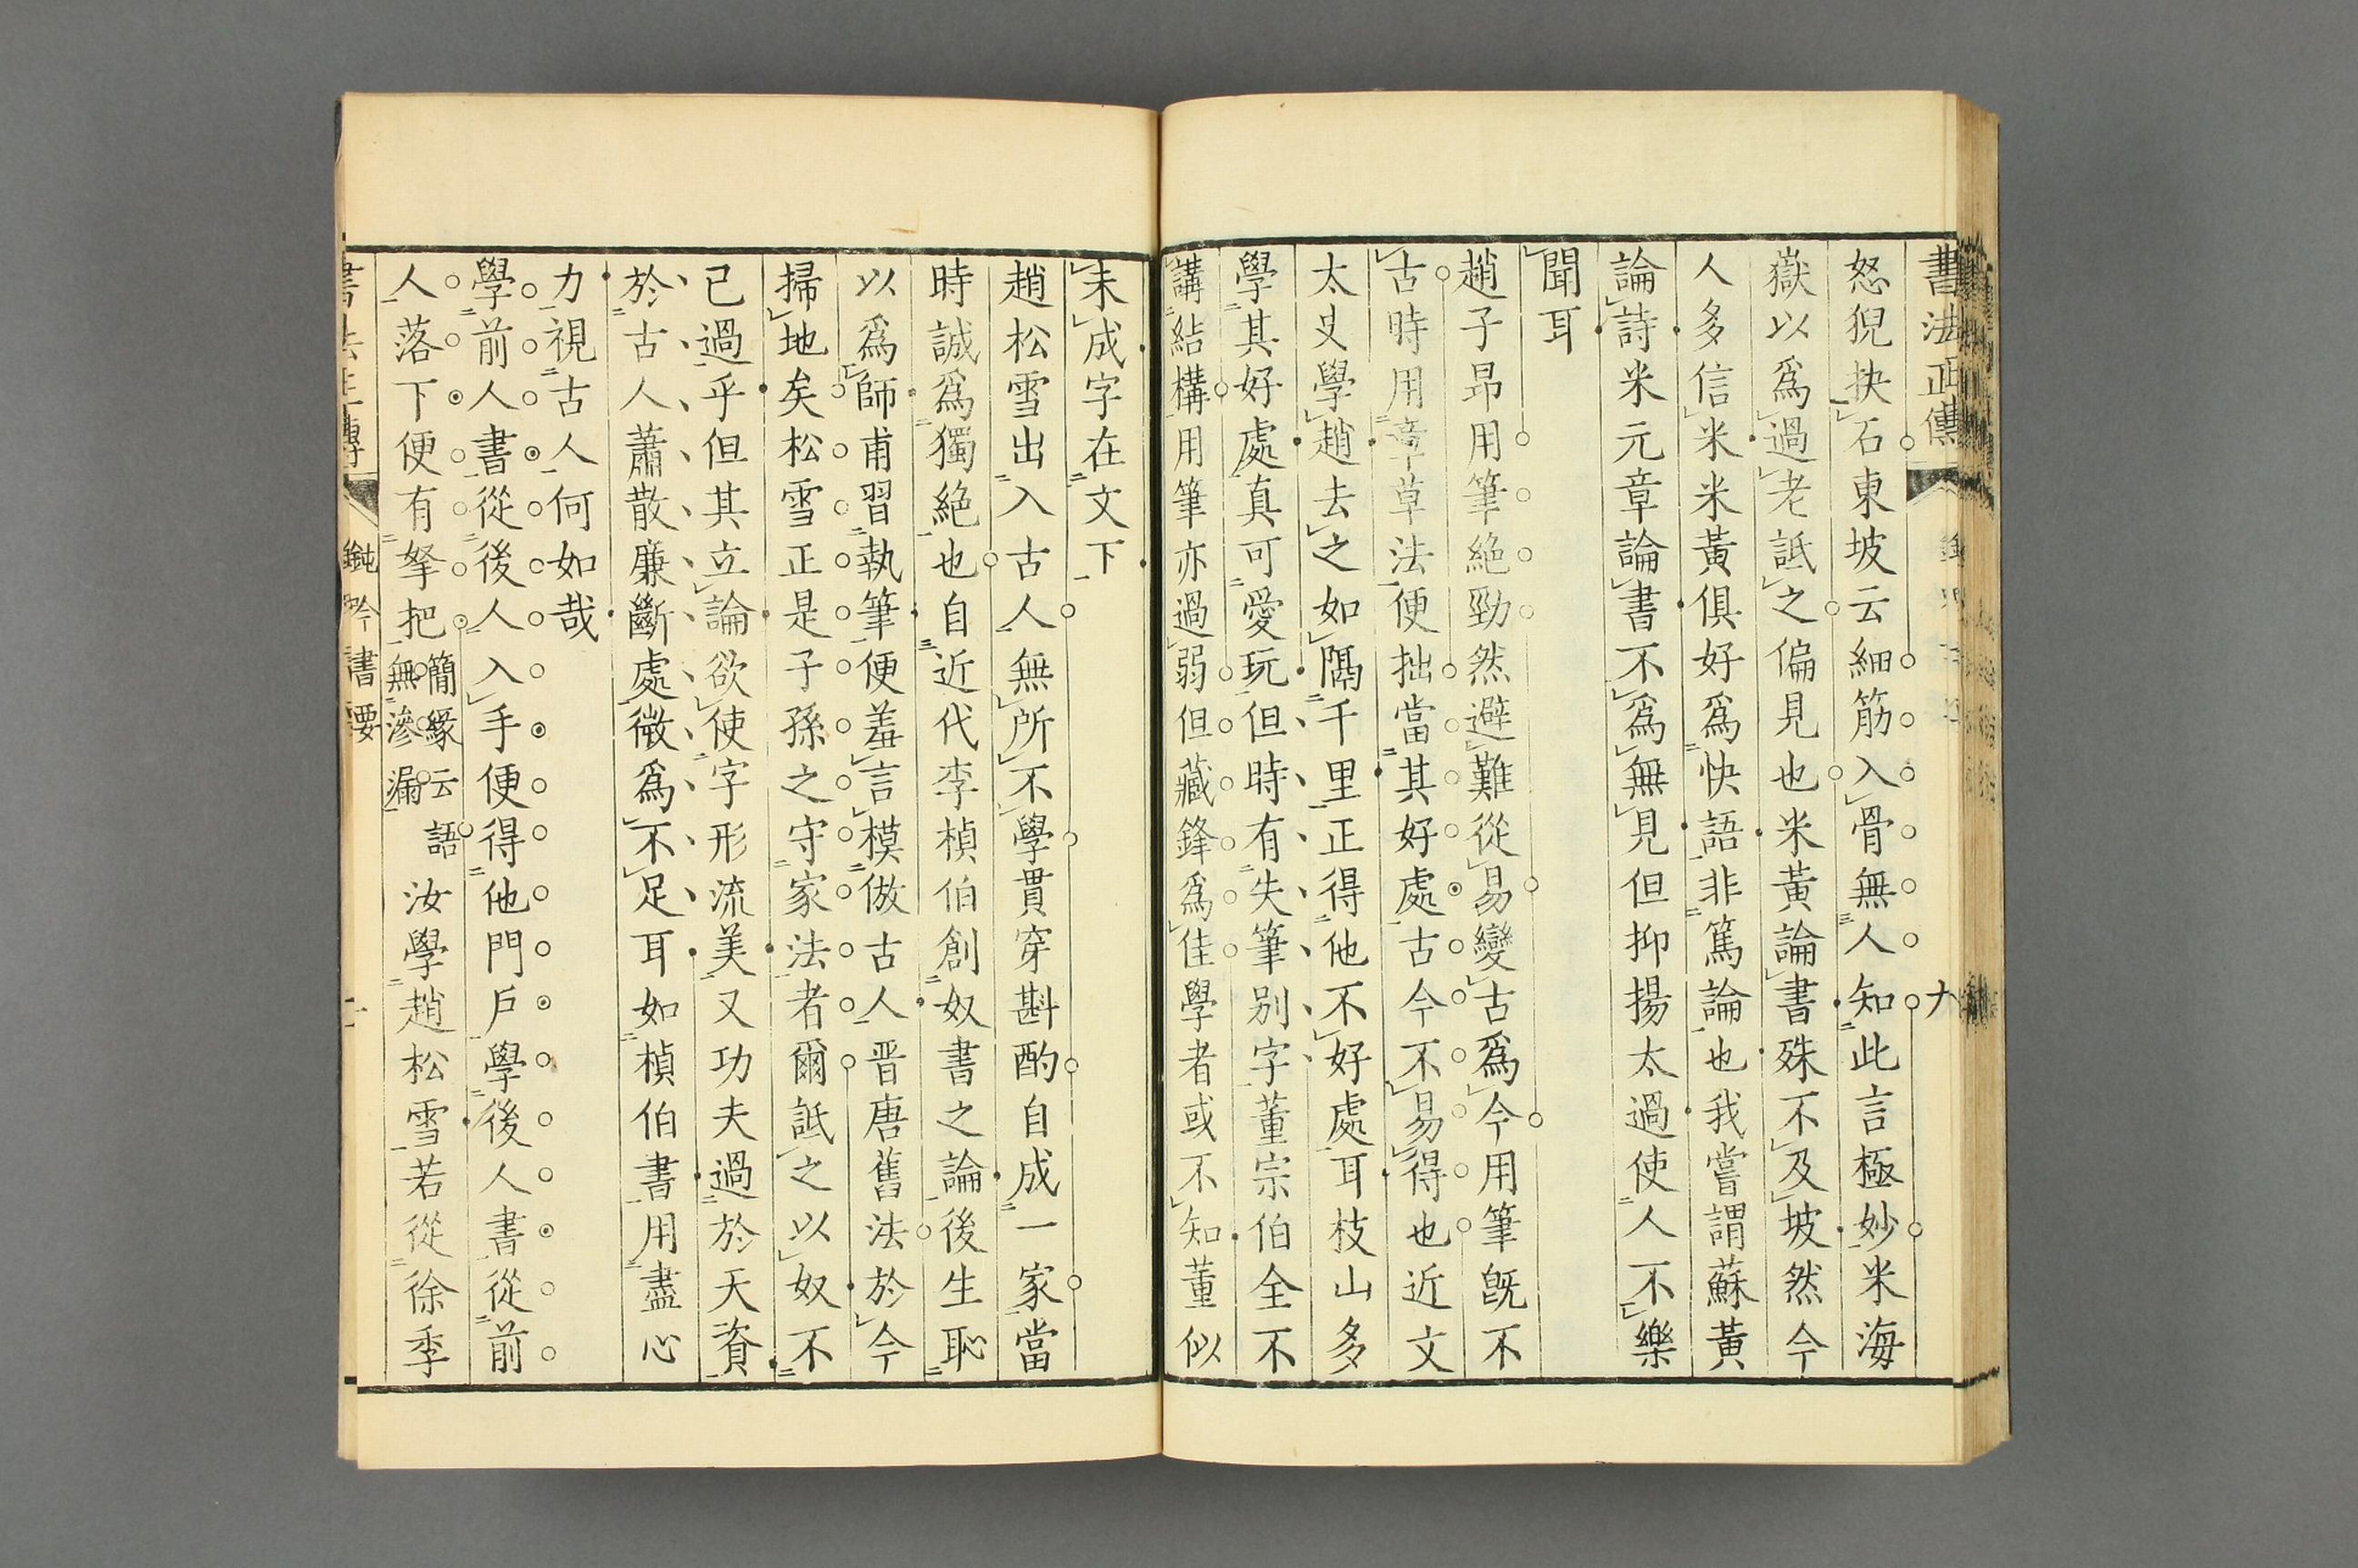 書法正傳
九
怒猊抉石東坡云細筋入骨無人知此言極妙米海
嶽以爲過老詆之偏見也米黃論書殊不及坡然今
人多信米米黃俱好爲快語非篤論也我嘗謂蘇黃
論詩米元章論書不爲無見但抑揚太過使人不樂
聞耳
趙子昂用筆絶勁然避難從易變古爲今用筆旣不
古時用章草法便拙當其好處古今不易得也近文
太史學趙去之如隔千里正得他不好處耳枝山多
學其好處真可愛玩但時有失筆别字董宗伯全不
講結構用筆亦過弱但藏鋒爲佳學者或不知董似
未成字在文下
趙松雪出入古人無所不學貫穿斟酌自成一家當
時誠爲獨絶也自近代李楨伯創奴書之論後生恥
以爲師甫習執筆便羞言模倣古人晋唐舊法於今
掃地矣松雪正是子孫之守家法者爾詆之以奴不
已過乎但其立論欲使字形流美又功夫過於天資
於古人蕭散廉斷處微爲不足耳如楨伯書用盡心
力視古人何如哉
學前人書從後人入手便得他門戶學後人書從前
人落下便有拏把簡緣云無滲漏語汝學趙松雪若從徐季
書法正傳
鈍吟書要